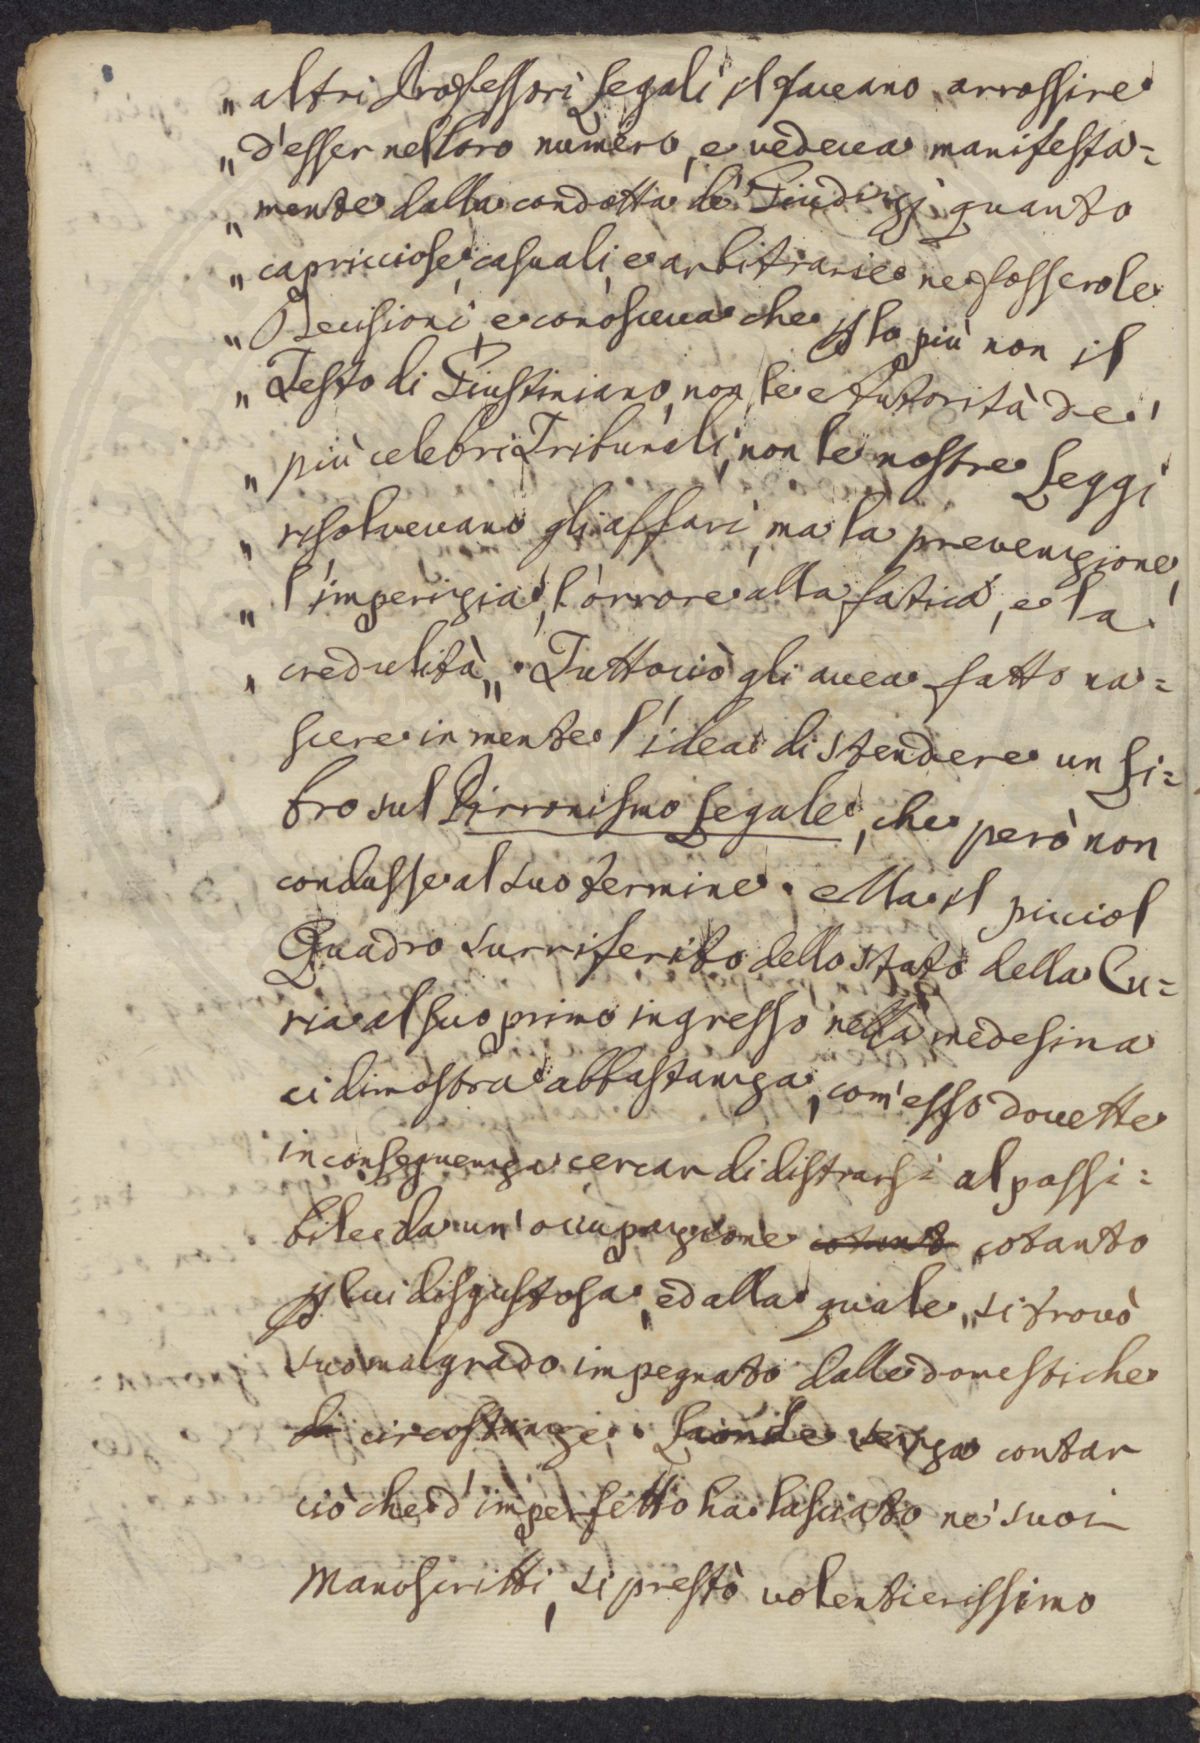 „ altri Professori Legali il faceano arrossire
„ d'esser nel loro numero, e vedeva manifesta=
„ mente dalla condotta de' Giudizj quanto
„ capricciose, casuali, e arbitrarie ne fosser le
„ Decisioni, e conosceva che p lo più non il
„ Testo di Giustiniano, non le Autorità de'
„ più celebri Tribunali, non le nostre Leggi
„ risolvevano gli affari, ma la prevenzione,
„ l'imperizia, l'orrore alla fatica, e la
„ credulità„. Tuttociò gli avea fatto na=
scere in mente l'idea di stendere un Li=
bro sul Pirronismo Legale, che però non
condusse al suo termine. Ma il picciol
Quadro surriferito dello stato della Cu=
ria al suo primo ingresso nella medesima
ci dimostra abbastanza, com'esso dovette
in conseguenza cercar di distrarsi al possi=
bile da un'occupazione cotanto cotanto
p lui disgustosa, ed alla quale „si trovò
suo malgrado impegnato dalle domestiche
di circostanze. Laonde senza contar
ciò che d'imperfetto ha lasciato ne' suoi
Manoscritti, si prestò volentierissimo